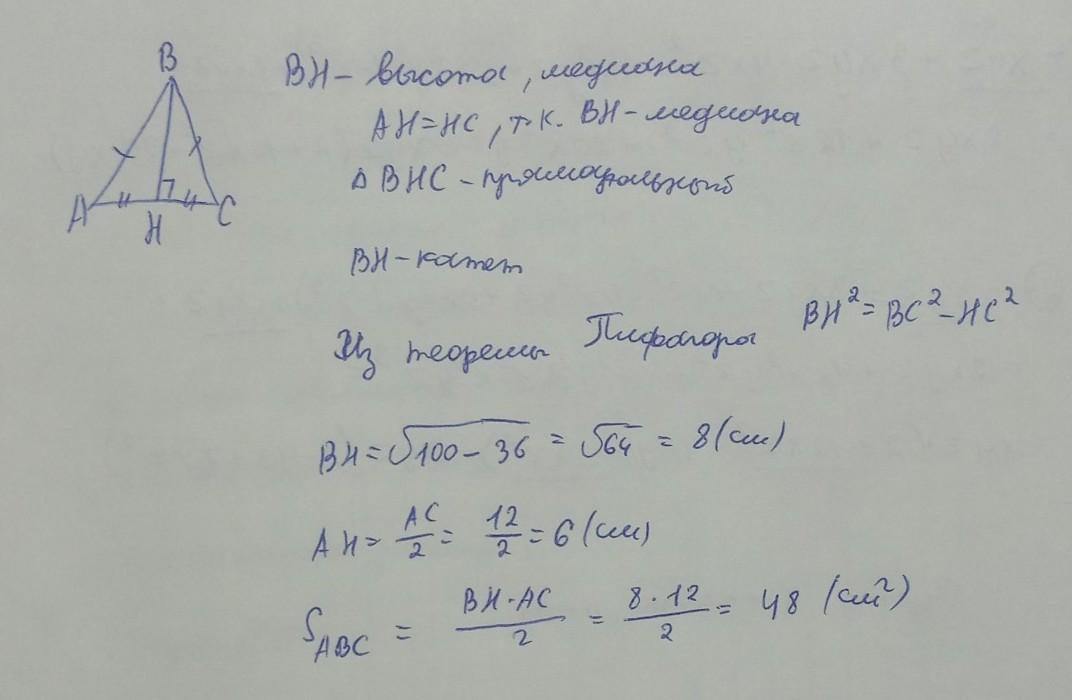 B
A
H
C
BH - высота, медиана
AH=HC, т.к. BH-медиана
Δ BHC - прямоугольный
BH - катет
Из теоремы Пифагора BH²=BC²-HC²
BH=√100-36 = √64 = 8 (см)
AH= AC/2 = 12/2 = 6 (см)
S_ABC = BH·AC/2 = 8·12/2 = 48 (см²)